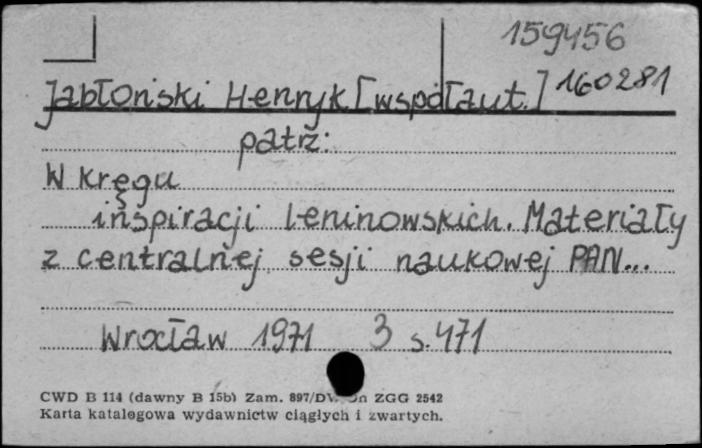 159456
Jabłoński Henryk [współaut.] 160281
patrz:
W kręgu
inspiracji leninowskich. Materiały
z centralnej sesji naukowej PAN...
Wrocław 1971 3 s. 471
CWD B 114 (dawny B 15b) Zam. 897/ ZGG 2542
Karta katalogowa wydawnictw ciągłych i zwartych.